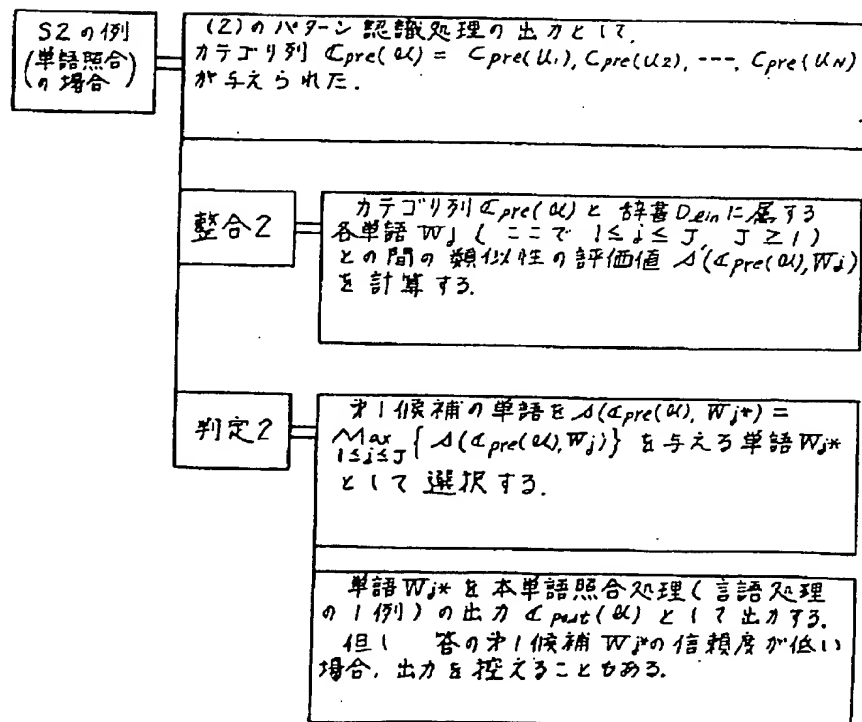 S2の例
(単語照合)
の場合
(2)のパターン認識処理の出力として,
カテゴリ列 ℂpre(𝒰) = Cpre(U1), Cpre(U2), ---, Cpre(UN)
が与えられた.
整合2
カテゴリ列ℂpre(𝒰)と辞書Dleinに属する
各単語Wj (ここで 1≤j≤J, J≥1)
との間の類似性の評価値 s(ℂpre(𝒰),Wj)
を計算する.
判定2
才1候補の単語を s(ℂpre(𝒰), Wj*) =
Max { s(ℂpre(𝒰),Wj)} を与える単語Wj*
1≤j≤J
として選択する.
単語Wj* を本単語照合処理(言語処理
の1例)の出力 ℂpost(𝒰) として出力する.
但し 答の才1候補Wj*の信頼度が低い
場合,出力を控えることもある.